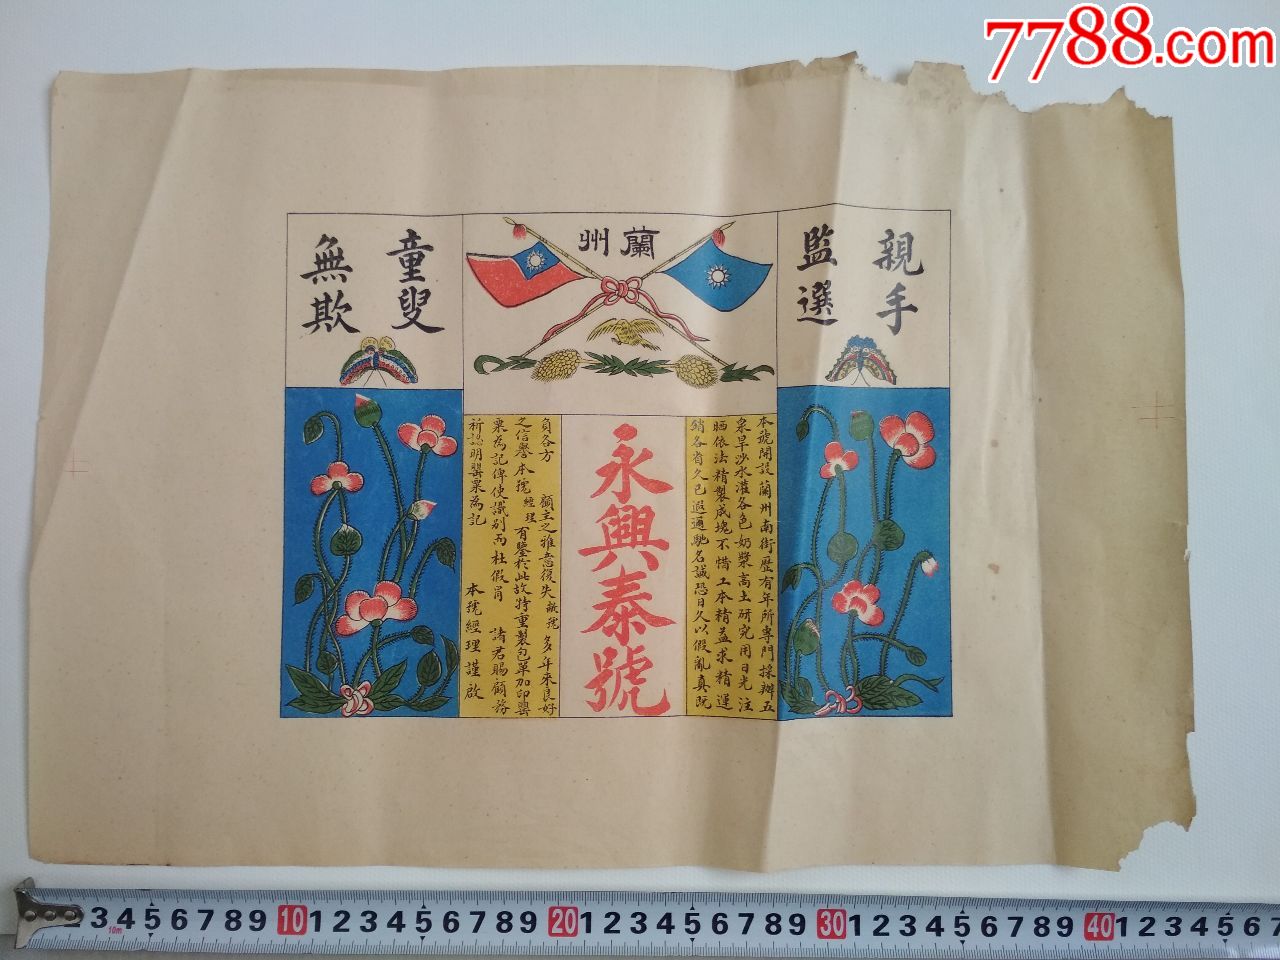 7788.com
蘭州
親手
監選
童叟
無欺
永興泰號
本號開設蘭州南街歷有年所專門採辦五
泉旱沙水灌各色奶漿高土研究用日光注
晒依法精製成塊不惜工本精益求精運
銷各省久已遐邇馳名誠恐日久以假亂真既
負各方 顧主之雅意復失敝號多年來良好
之信譽本號經理有鑒於此故特重製包單加印罌
栗為記俾使識別而杜假冒 諸君賜顧務
祈認明罌粟為記 本號經理謹啟
3 4 5 6 7 8 9 10 1 2 3 4 5 6 7 8 9 20 1 2 3 4 5 6 7 8 9 30 1 2 3 4 5 6 7 8 9 40 1 2 3 4 5 6 7
10m